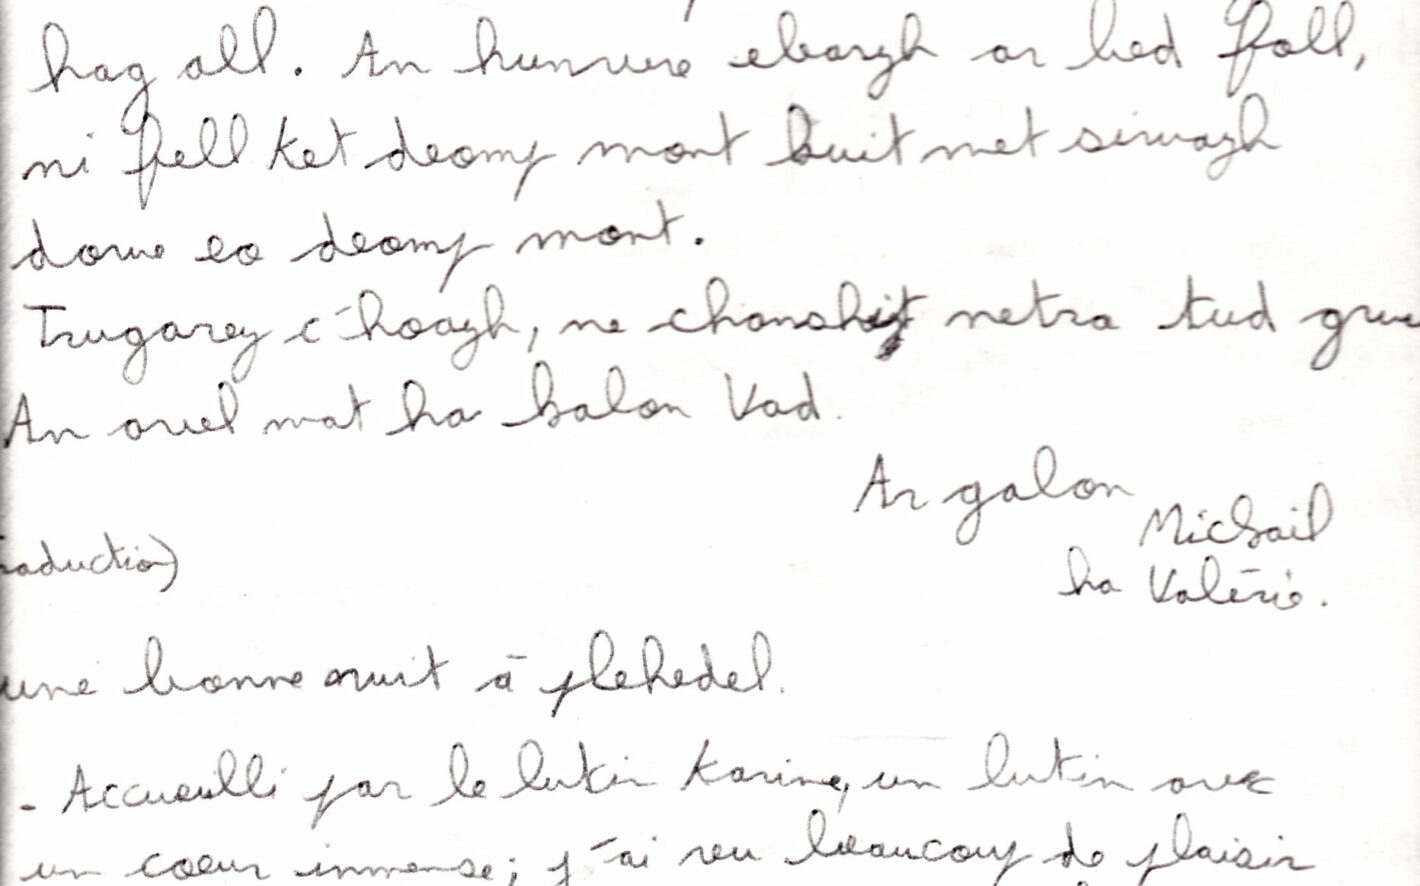 hag all. An hunvre ebarzh ar bed foll,
ni fell ket deomp mont kuit met siwazh
dowe eo deomp mont.
Trugarez c'hoazh, ne chanshit netra tud
An avel mat ha kalon vad.
Ar galon Mic'hail
ha Valérie.
raduction)
une bonne nuit à plehedel.
- Accueilli par le lutin Karine, un lutin avec
un coeur immense; j'ai reu beaucoup de plaisir